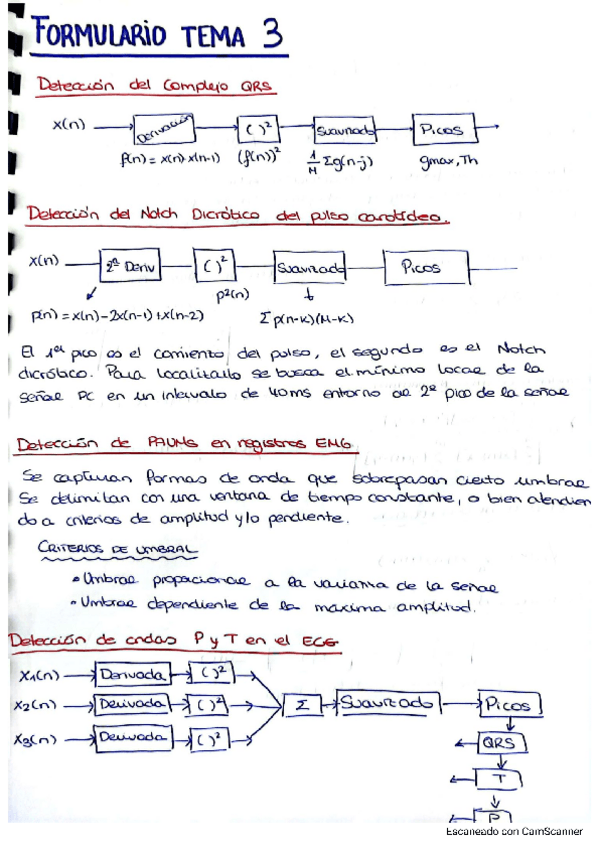 FORMULARIO TEMA 3
Detección del Complejo QRS
x(n) Derivación ( )² Suavizado Picos
f(n) = x(n)-x(n-1) (f(n))² 1/M Σg(n-j) gmax, Th
Detección del Notch Dicrótico del pulso carotídeo.
x(n) 2ª Deriv ( )² Suavizado Picos
p²(n)
p(n) = x(n) - 2x(n-1) + x(n-2) Σp(n-k)(M-k)
El 1er pico es el comiento del pulso, el segundo es el Notch
dicrótico. Para localizarlo se busca el mínimo local de la
señal PC en un intervalo de 40ms entorno al 2º pico de la señal
Detección de PAUMs en registros EMG
Se capturan formas de onda que sobrepasan cierto umbral
Se delimitan con una ventana de tiempo constante, o bien atendien
do a criterios de amplitud y/o pendiente.
CRITERIOS DE UMBRAL
• Umbral proporcional a la varianza de la señal
• Umbral dependiente de la maxima amplitud.
Detección de ondas P y T en el ECG
x1(n) Derivada ( )²
x2(n) Derivada ( )² Σ Suavizado Picos
x3(n) Derivada ( )² QRS
T
P
Escaneado con CamScanner